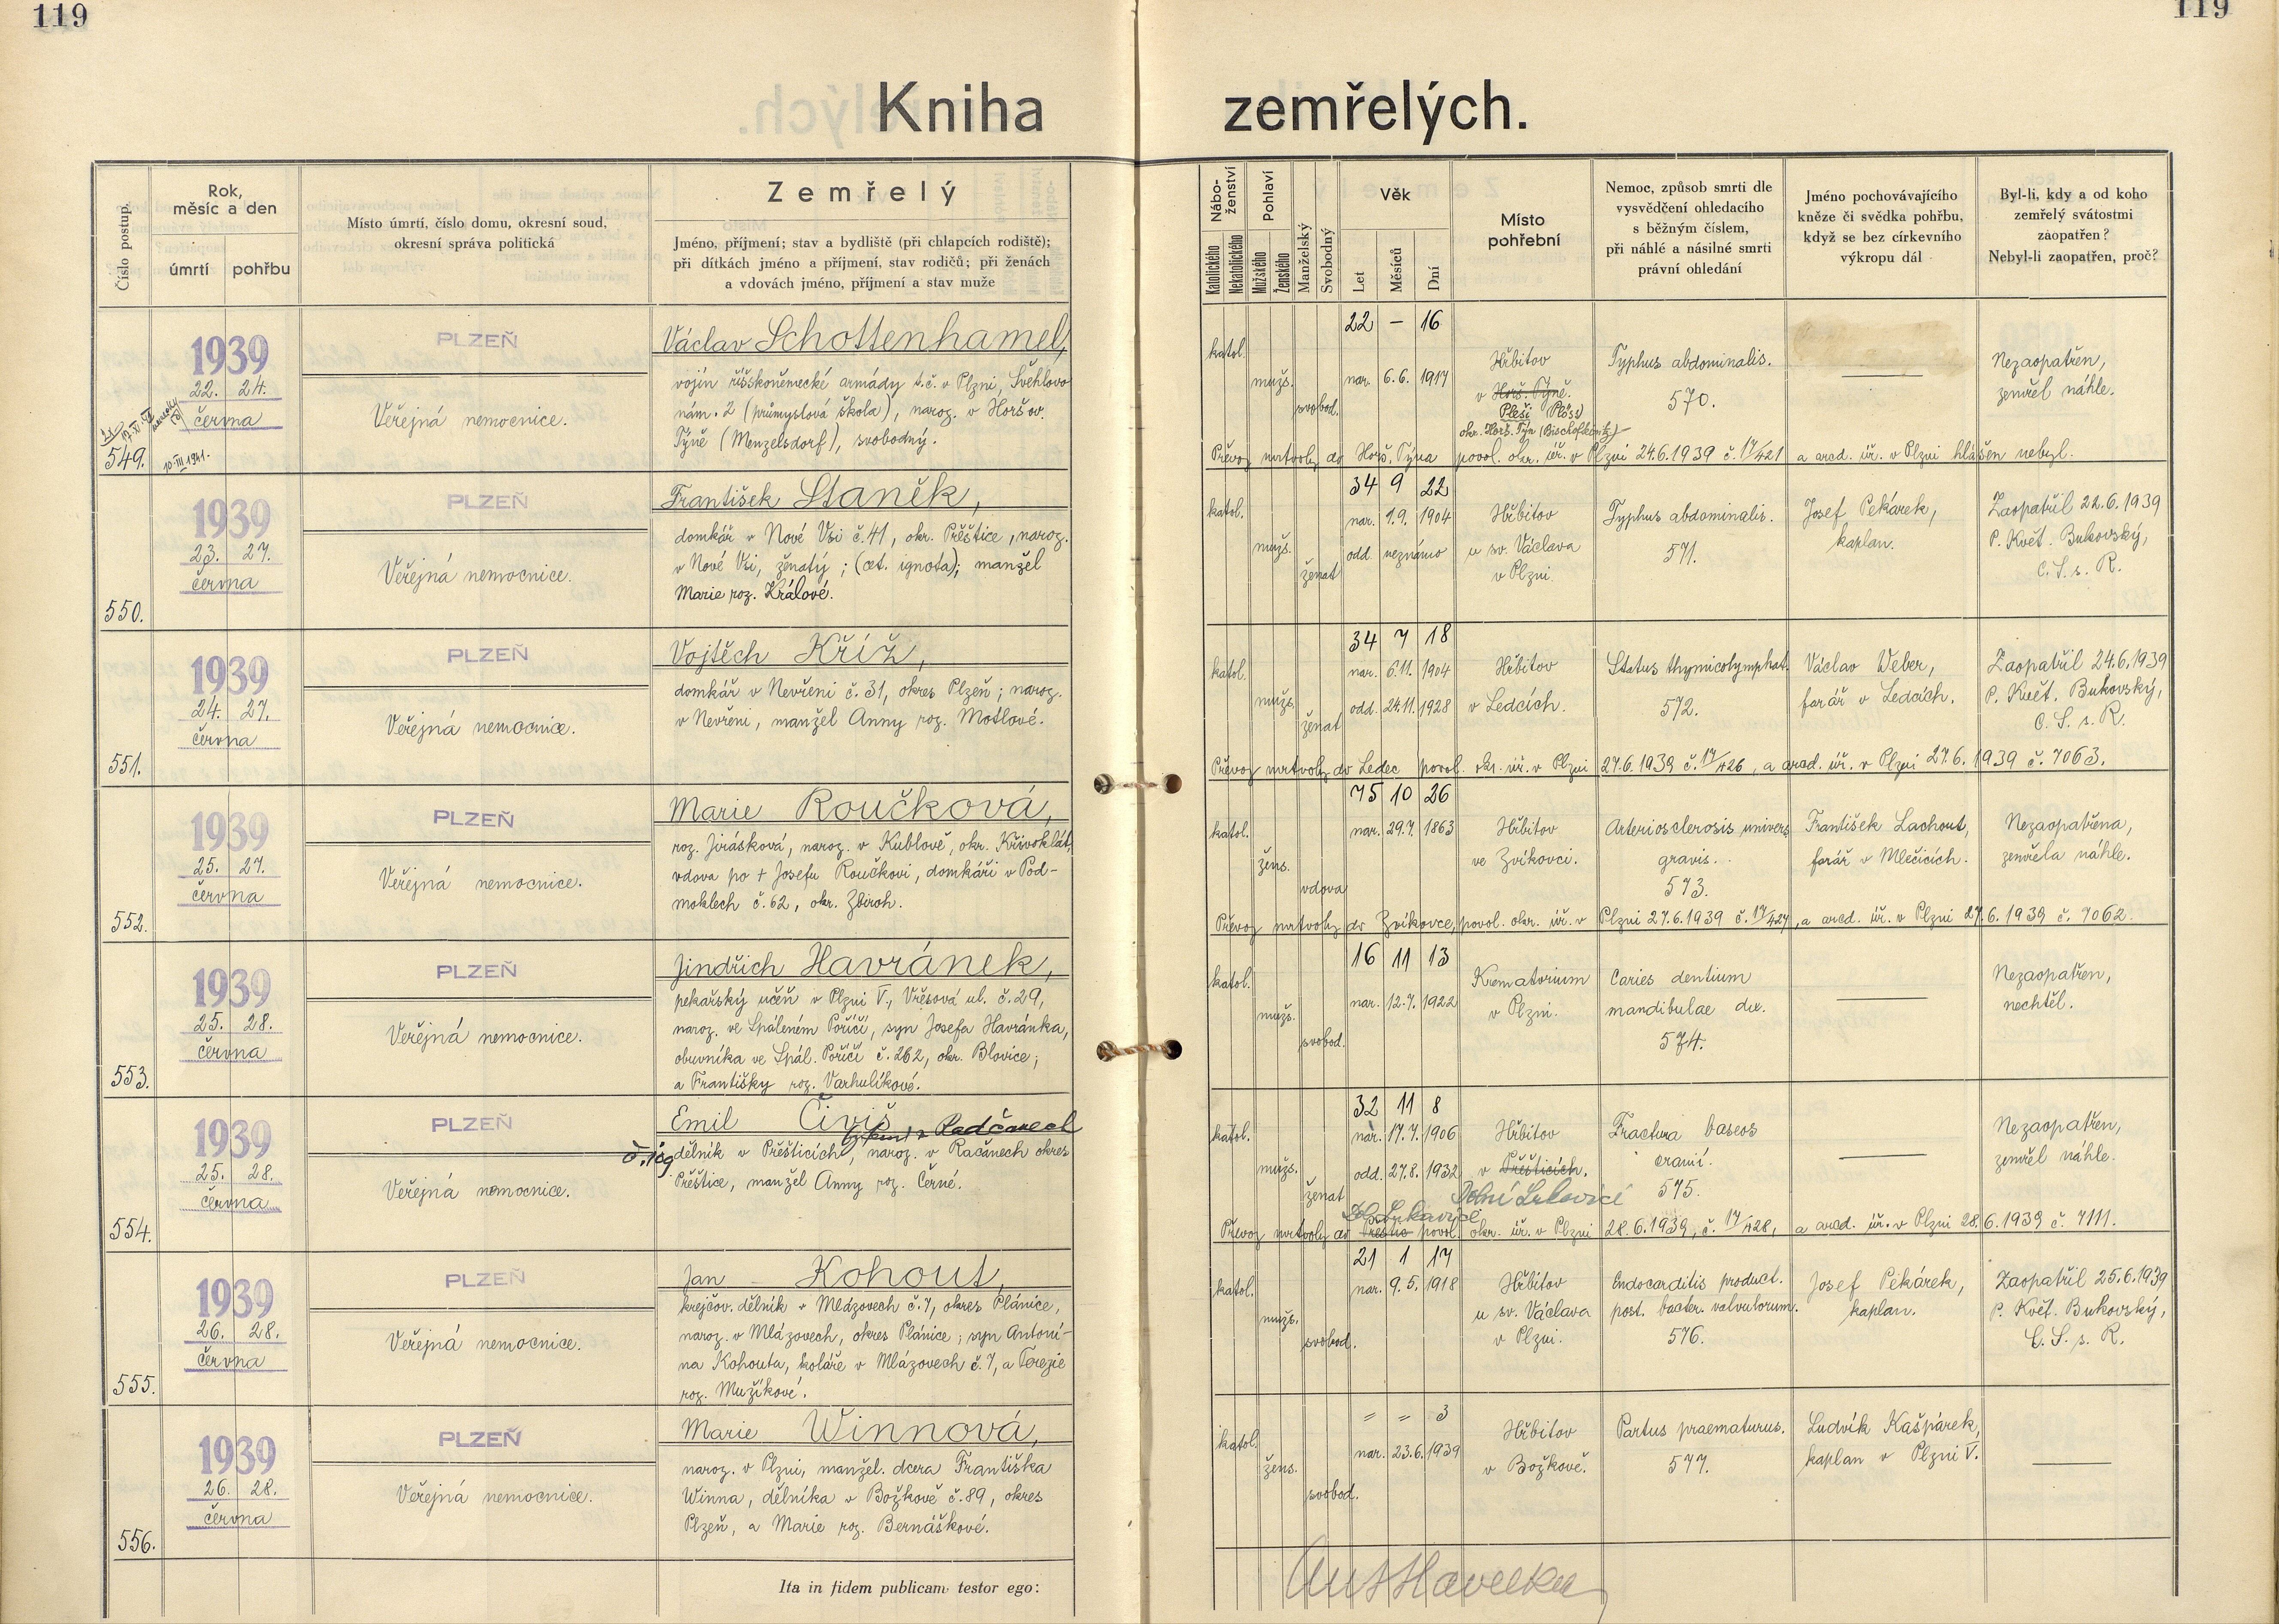 119
119
Kniha zemřelých.
Číslo postup.
Rok, měsíc a den
úmrtí
pohřbu
Místo úmrtí, číslo domu, okresní soud,
okresní správa politická
Zemřelý
Jméno, příjmení; stav a bydliště (při chlapcích rodiště);
při dítkách jméno a příjmení, stav rodičů; při ženách
a vdovách jméno, příjmení a stav muže
Nábo-
ženství
Katolického
Nekatolického
Pohlaví
Mužského
Ženského
Manželský
Svobodný
Věk
Let
Měsíců
Dní
Místo
pohřební
Nemoc, způsob smrti dle
vysvědčení ohledacího
s běžným číslem,
při náhlé a násilné smrti
právní ohledání
Jméno pochovávajícího
kněze či svědka pohřbu,
když se bez církevního
výkropu dál
Byl-li, kdy a od koho
zemřelý svátostmi
zaopatřen?
Nebyl-li zaopatřen, proč?
549.
10.III.1941.
1939
22. 24.
června
PLZEŇ
Veřejná nemocnice.
Václav Schottenhamel,
vojín říšskoněmecké armády t.č. v Plzni, Švehlovo
nám. 2 (průmyslová škola), naroz. v Horšov.
Týně (Menzelsdorf), svobodný.
katol.
mužs.
svobod.
22 – 16
nar. 6.6. 1917
Hřbitov
v Horš. Týně.
Pleši (Plöss)
okr. Horš. Týn (Bischofteinitz)
Typhus abdominalis.
570.
Nezaopatřen,
zemřel náhle.
Převoz mrtvoly do Horš. Týna povol. okr. úř. v Plzni 24.6.1939 č. 17/421 a arcd. úř. v Plzni hlášen nebyl.
550.
1939
23. 27.
června
PLZEŇ
Veřejná nemocnice.
František Staněk,
domkář v Nové Vsi č. 41, okr. Přeštice, naroz.
v Nové Vsi, ženatý; (cet. ignota); manžel
Marie roz. Králové.
katol.
mužs.
ženat
34 9 22
nar. 1.9. 1904
odd. neznámo
Hřbitov
u sv. Václava
v Plzni.
Typhus abdominalis.
571.
Josef Pekárek,
kaplan.
Zaopatřil 22.6.1939
P. Květ. Bukovský,
C. S. s. R.
551.
1939
24. 27.
června
PLZEŇ
Veřejná nemocnice.
Vojtěch Kříž,
domkář v Nevřeni č. 31, okres Plzeň; naroz.
v Nevřeni, manžel Anny roz. Motlové.
katol.
mužs.
ženat
34 7 18
nar. 6.11. 1904
odd. 24.11. 1928
Hřbitov
v Ledcích.
Status thymicolymphat.
572.
Václav Weber,
farář v Ledcích.
Zaopatřil 24.6.1939
P. Květ. Bukovský,
C. S. s. R.
Převoz mrtvoly do Ledec povol. okr. úř. v Plzni 27.6.1939 č. 17/426, a arcd. úř. v Plzni 27.6.1939 č. 7063.
552.
1939
25. 27.
června
PLZEŇ
Veřejná nemocnice.
Marie Roučková,
roz. Jirásková, naroz. v Kublově, okr. Křivoklát,
vdova po + Josefu Roučkovi, domkáři v Pod-
moklech č. 62, okr. Zbiroh.
katol.
žens.
vdova
75 10 26
nar. 29.7. 1863
Hřbitov
ve Zvíkovci.
Arteriosclerosis univers
gravis.
573.
František Lachout,
farář v Mlečicích.
Nezaopatřena,
zemřela náhle.
Převoz mrtvoly do Zvíkovce, povol. okr. úř. v Plzni 27.6.1939 č. 17/427, a arcd. úř. v Plzni 27.6.1939 č. 7062.
553.
1939
25. 28.
června
PLZEŇ
Veřejná nemocnice.
Jindřich Havránek,
pekařský učeň v Plzni V., Vřesová ul. č. 29,
naroz. ve Spáleném Poříčí, syn Josefa Havránka,
obuvníka ve Spál. Poříčí č. 262, okr. Blovice;
a Františky roz. Varhulíkové.
katol.
mužs.
svobod.
16 11 13
nar. 12.7. 1922
Krematorium
v Plzni.
Caries dentium
mandibulae dex.
574.
Nezaopatřen,
nechtěl.
554.
1939
25. 28.
června
PLZEŇ
Veřejná nemocnice.
Emil Čiviš
Radčanech
č. 109
dělník v Přešticích, naroz. v Račanech okres
Přeštice, manžel Anny roz. Černé.
katol.
mužs.
ženat
32 11 8
nar. 17.7. 1906
odd. 27.8. 1932
Hřbitov
v Přešticích.
Fractura baseos
cranii.
575.
Nezaopatřen,
zemřel náhle.
Převoz mrtvoly do povol. okr. úř. v Plzni 28.6.1939, č. 17/428, a arcd. úř. v Plzni 28.6.1939 č. 7111.
555.
1939
26. 28.
června
PLZEŇ
Veřejná nemocnice.
Jan Kohout,
krejčov. dělník v Mlázovech č. 7, okres Plánice,
naroz. v Mlázovech, okres Plánice; syn Antoní-
na Kohouta, koláře v Mlázovech č. 7, a Terezie
roz. Mužíkové.
katol.
mužs.
svobod.
21 1 17
nar. 9.5. 1918
Hřbitov
u sv. Václava
v Plzni.
Endocarditis product.
post. bacter. valvulorum.
576.
Josef Pekárek,
kaplan.
Zaopatřil 25.6.1939
P. Květ. Bukovský,
C. S. s. R.
556.
1939
26. 28.
června
PLZEŇ
Veřejná nemocnice.
Marie Winnová,
naroz. v Plzni, manžel. dcera Františka
Winna, dělníka v Božkově č. 89, okres
Plzeň, a Marie roz. Bernáškové.
katol.
žens.
svobod.
= = 3
nar. 23.6. 1939
Hřbitov
v Božkově.
Partus praematurus.
577.
Ludvík Kašpárek,
kaplan v Plzni V.
Ita in fidem publicam testor ego: